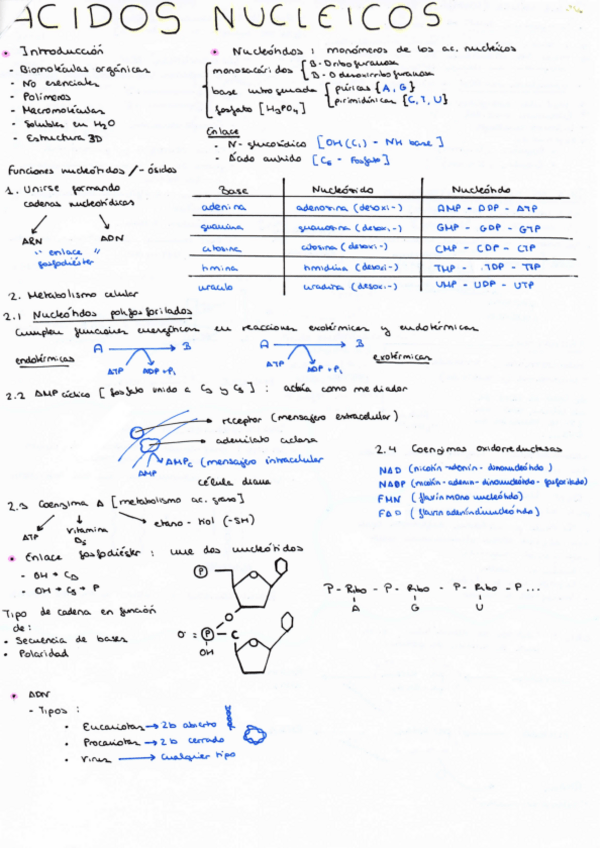 ACIDOS NUCLEICOS
• Introducción
- Biomoléculas orgánicas
- No esenciales
- Polímeros
- Macromoléculas
- Solubles en H2O
- Estructura 3D
• Nucleótidos : monómeros de los ac. nucleicos
monosacáridos { B-D ribofuranosa
B-D desoxirribofuranosa
base nitrogenada { púricas {A, G}
pirimidínicas {C, T, U}
fosfato [H3PO4]
Enlace
• N-glucosídico [OH(C1) - NH base]
• Ácido anhido [C5 - Fosfato]
Funciones nucleótidos / -ósidos
1. Unirse formando
cadenas nucleotídicas
ARN ADN
"enlace"
fosfodiéster
Base Nucleósido Nucleótido
adenina adenosina (desoxi-) AMP - ADP - ATP
guanina guanosina (desoxi-) GMP - GDP - GTP
citosina citosina (desoxi-) CMP - CDP - CTP
timina timidina (desoxi-) TMP - TDP - TTP
uracilo uradina (desoxi-) UMP - UDP - UTP
2. Metabolismo celular
2.1 Nucleótidos polifosforilados
Cumplen funciones energéticas en reacciones exotérmicas y endotérmicas
endotérmicas A → B
ATP ADP + Pi
A → B exotérmicas
ATP ADP + Pi
2.2 AMP cíclico [fosfato unido a C3 y C5] : actúa como mediador
receptor (mensajero extracelular)
adenilato ciclasa
AMPc (mensajero intracelular
AMP
célula diana
2.3 Coenzima A [metabolismo ac. graso]
ATP vitamina etano - tiol (-SH)
B5
2.4 Coenzimas oxidorreductasas
NAD (nicotin-adenin-dinucleótido)
NADP (nicotin-adenin-dinucleótido-fosforilado)
FMN (flavin mono nucleótido)
FAD (flavin adenindinucleótido)
• Enlace fosfodiéster : une dos nucleótidos
- OH + C3
- OH + C5 + P
P
O
O = P - C
OH
P - Ribo - P - Ribo - P - Ribo - P...
A G U
Tipo de cadena en función
de :
• Secuencia de bases
• Polaridad
• ADN
- Tipos :
• Eucariotas → 2b abierto
• Procariotas → 2b cerrado
• Virus → cualquier tipo